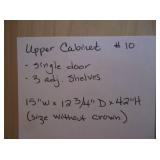 Upper Cabinet #10
- single door
- 3 adj. shelves
15"W x 12 3/4" D x 42"H
(size without crown)